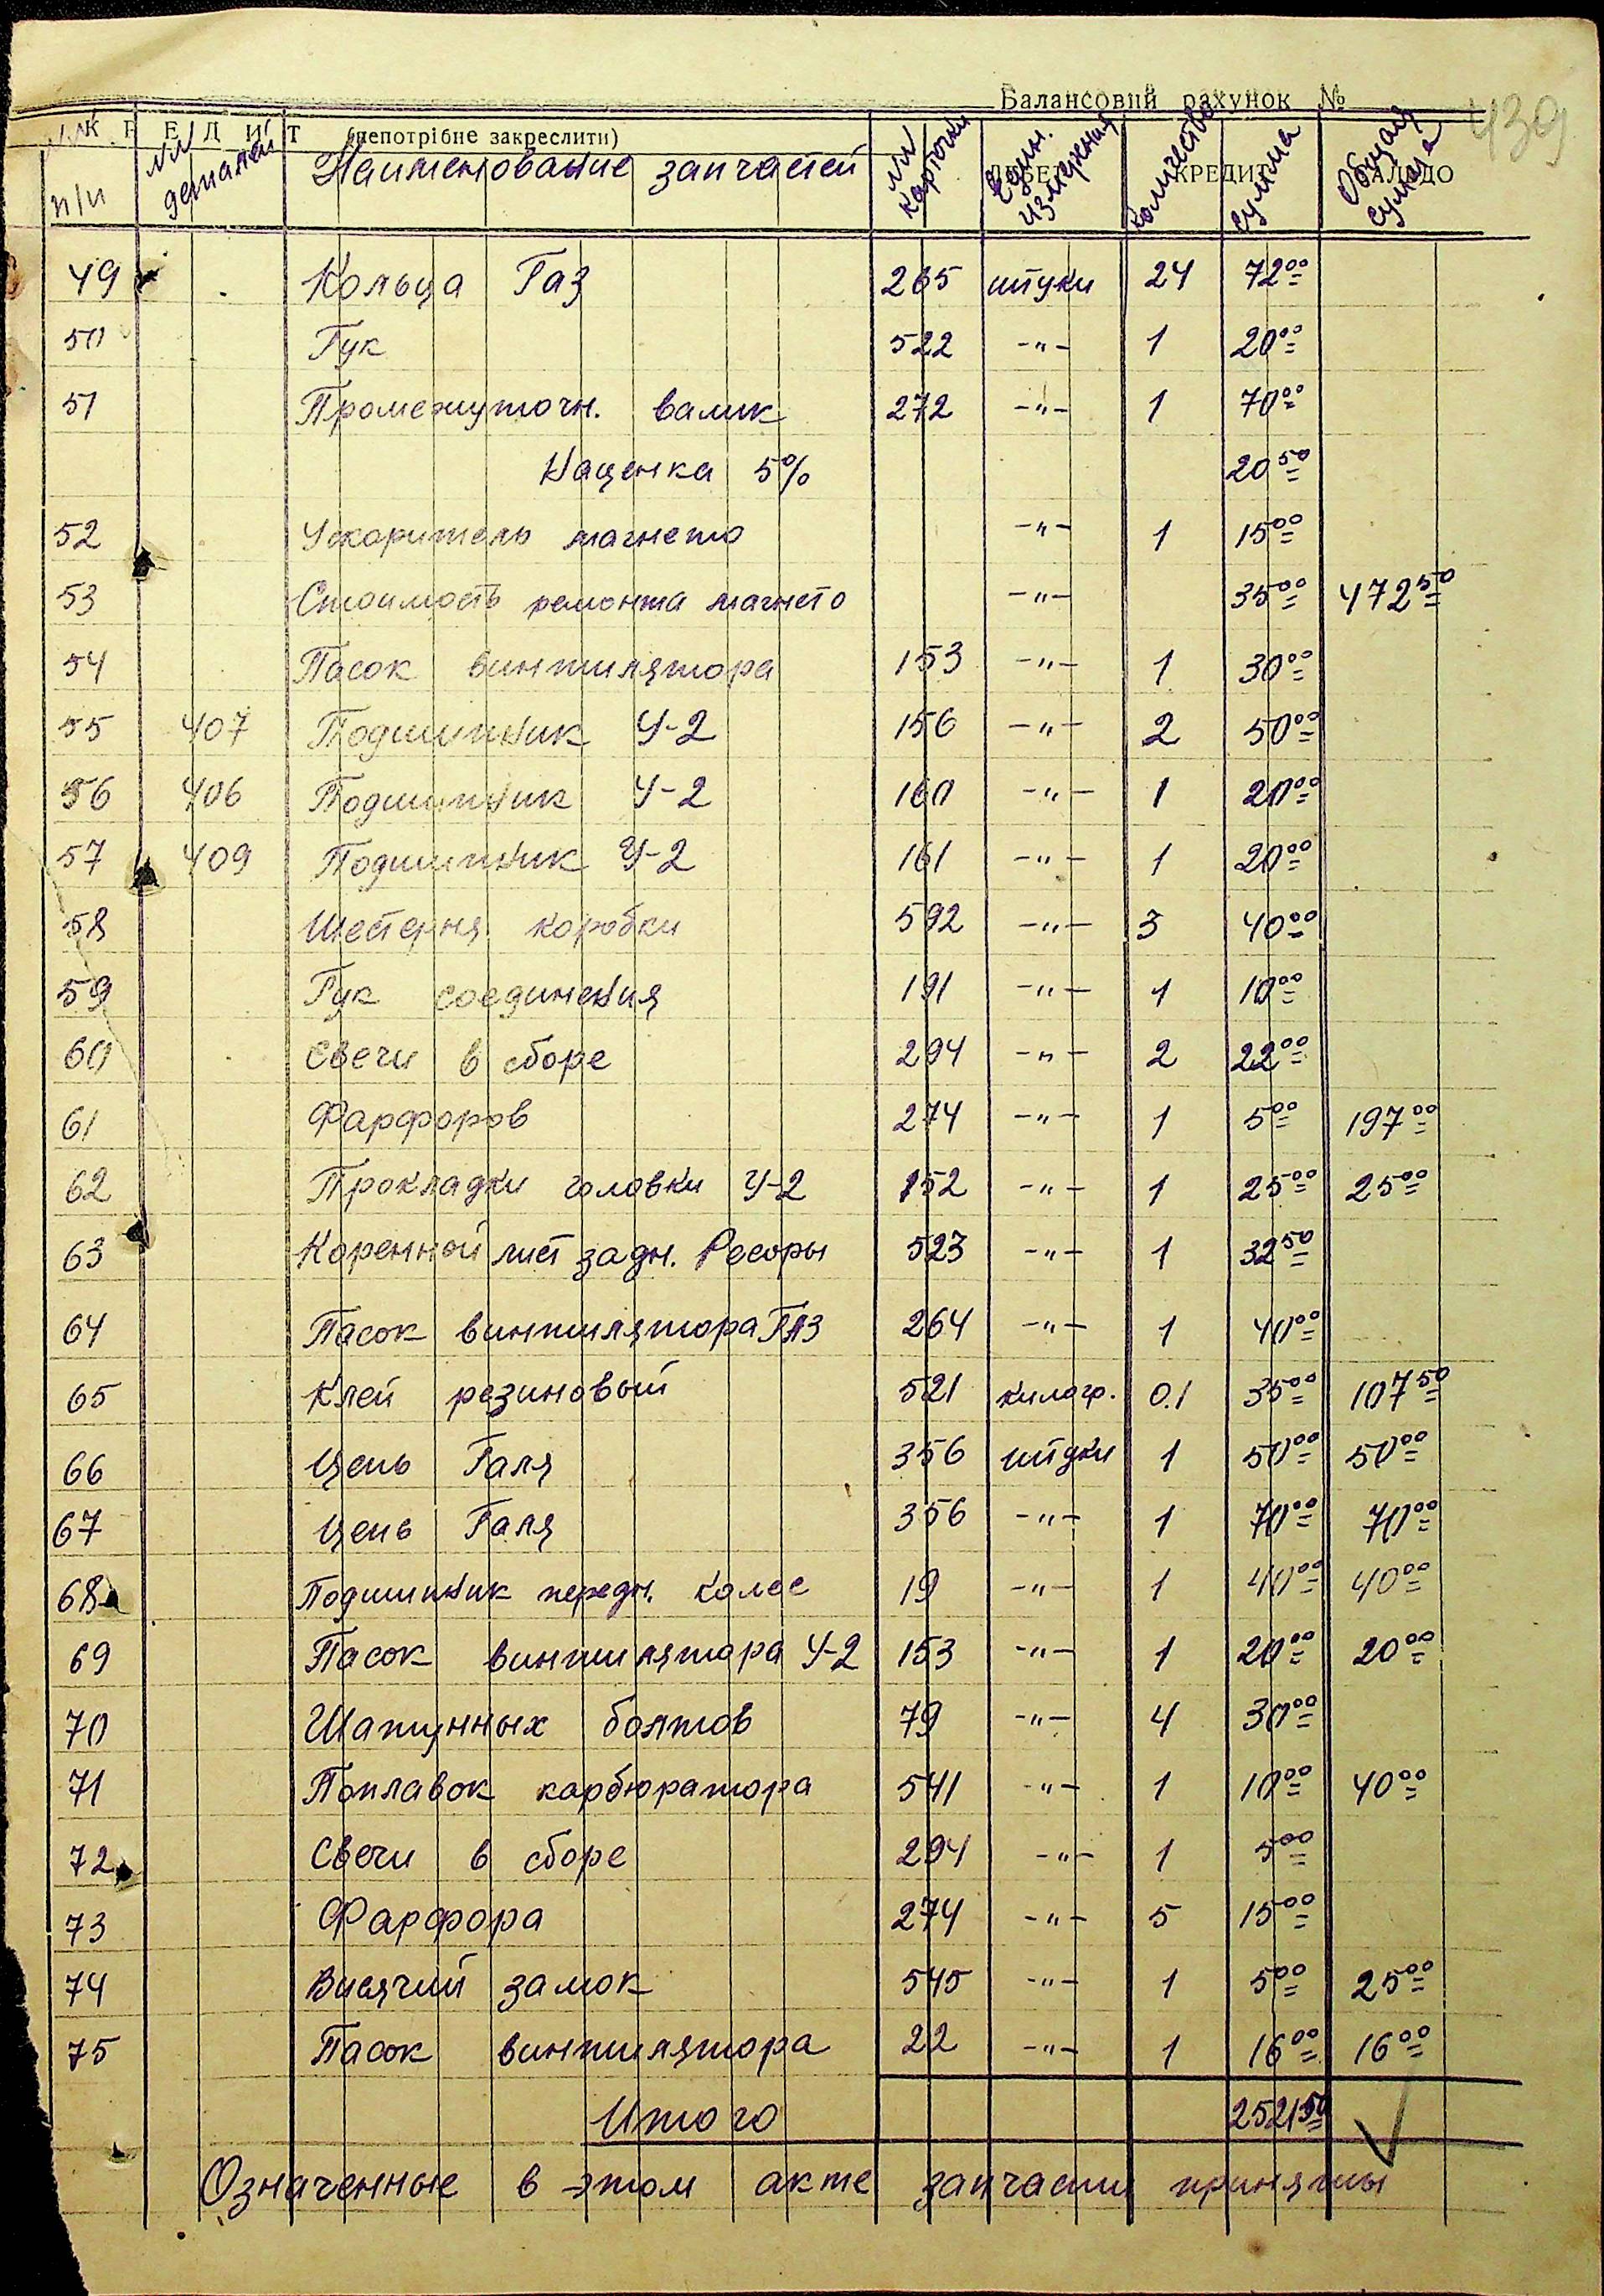 Балансовий рахунок №
439
К Р Е Д И Т (непотрібне закреслити)
ДЕБЕТ КРЕДИТ САЛЬДО
№№ п/п №№ деталей Наименование запчастей №№ карточки Един. измерения Количество Сумма Общая сумма
49 Кольца Газ 265 штуки 24 72 00
50 Гук 522 -"- 1 20 00
51 Промежуточн. валик 272 -"- 1 70 00
Наценка 5% 20 50
52 Ускоритель магнето -"- 1 15 00
53 Стоимость ремонта магнето -"- 35 00 472 50
54 Пасок винтилятора 153 -"- 1 30 00
55 407 Подшипник У-2 156 -"- 2 50 00
56 406 Подшипник У-2 160 -"- 1 20 00
57 409 Подшипник У-2 161 -"- 1 20 00
58 Шестерня коробки 592 -"- 3 40 00
59 Гук соединения 191 -"- 1 10 00
60 Свечи в сборе 294 -"- 2 22 00
61 Фарфоров 274 -"- 1 5 00 197 00
62 Прокладки головки У-2 152 -"- 1 25 00 25 00
63 Коренной лист задн. Ресоры 523 -"- 1 32 50
64 Пасок винтилятора ГАЗ 264 -"- 1 40 00
65 Клей резиновый 521 килогр. 0.1 35 00 107 50
66 Цепь Галя 356 штуки 1 50 00 50 00
67 Цепь Галя 356 -"- 1 70 00 70 00
68 Подшипник передн. колес 19 -"- 1 40 00 40 00
69 Пасок винтилятора У-2 153 -"- 1 20 00 20 00
70 Шатунных болтов 79 -"- 4 30 00
71 Поплавок карбюратора 541 -"- 1 10 00 40 00
72 Свечи в сборе 294 -"- 1 5 00
73 Фарфора 274 -"- 5 15 00
74 Висячий замок 545 -"- 1 5 00 25 00
75 Пасок винтилятора 22 -"- 1 16 00 16 00
Итого 2521 50
Означенные в этом акте запчасти приняты